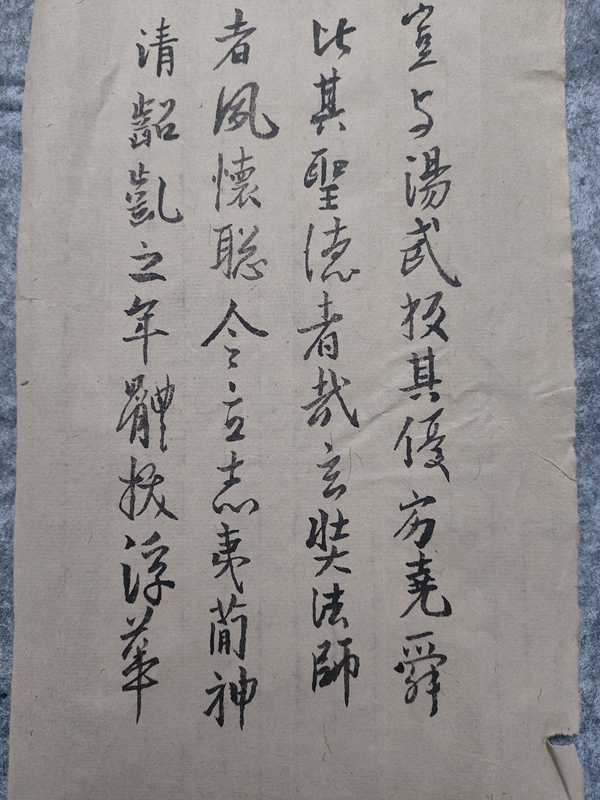 豈与湯武挍其優劣堯舜
比其聖德者哉玄奘法師
者夙懷聡令立志夷簡神
清齠齔之年體拔浮華